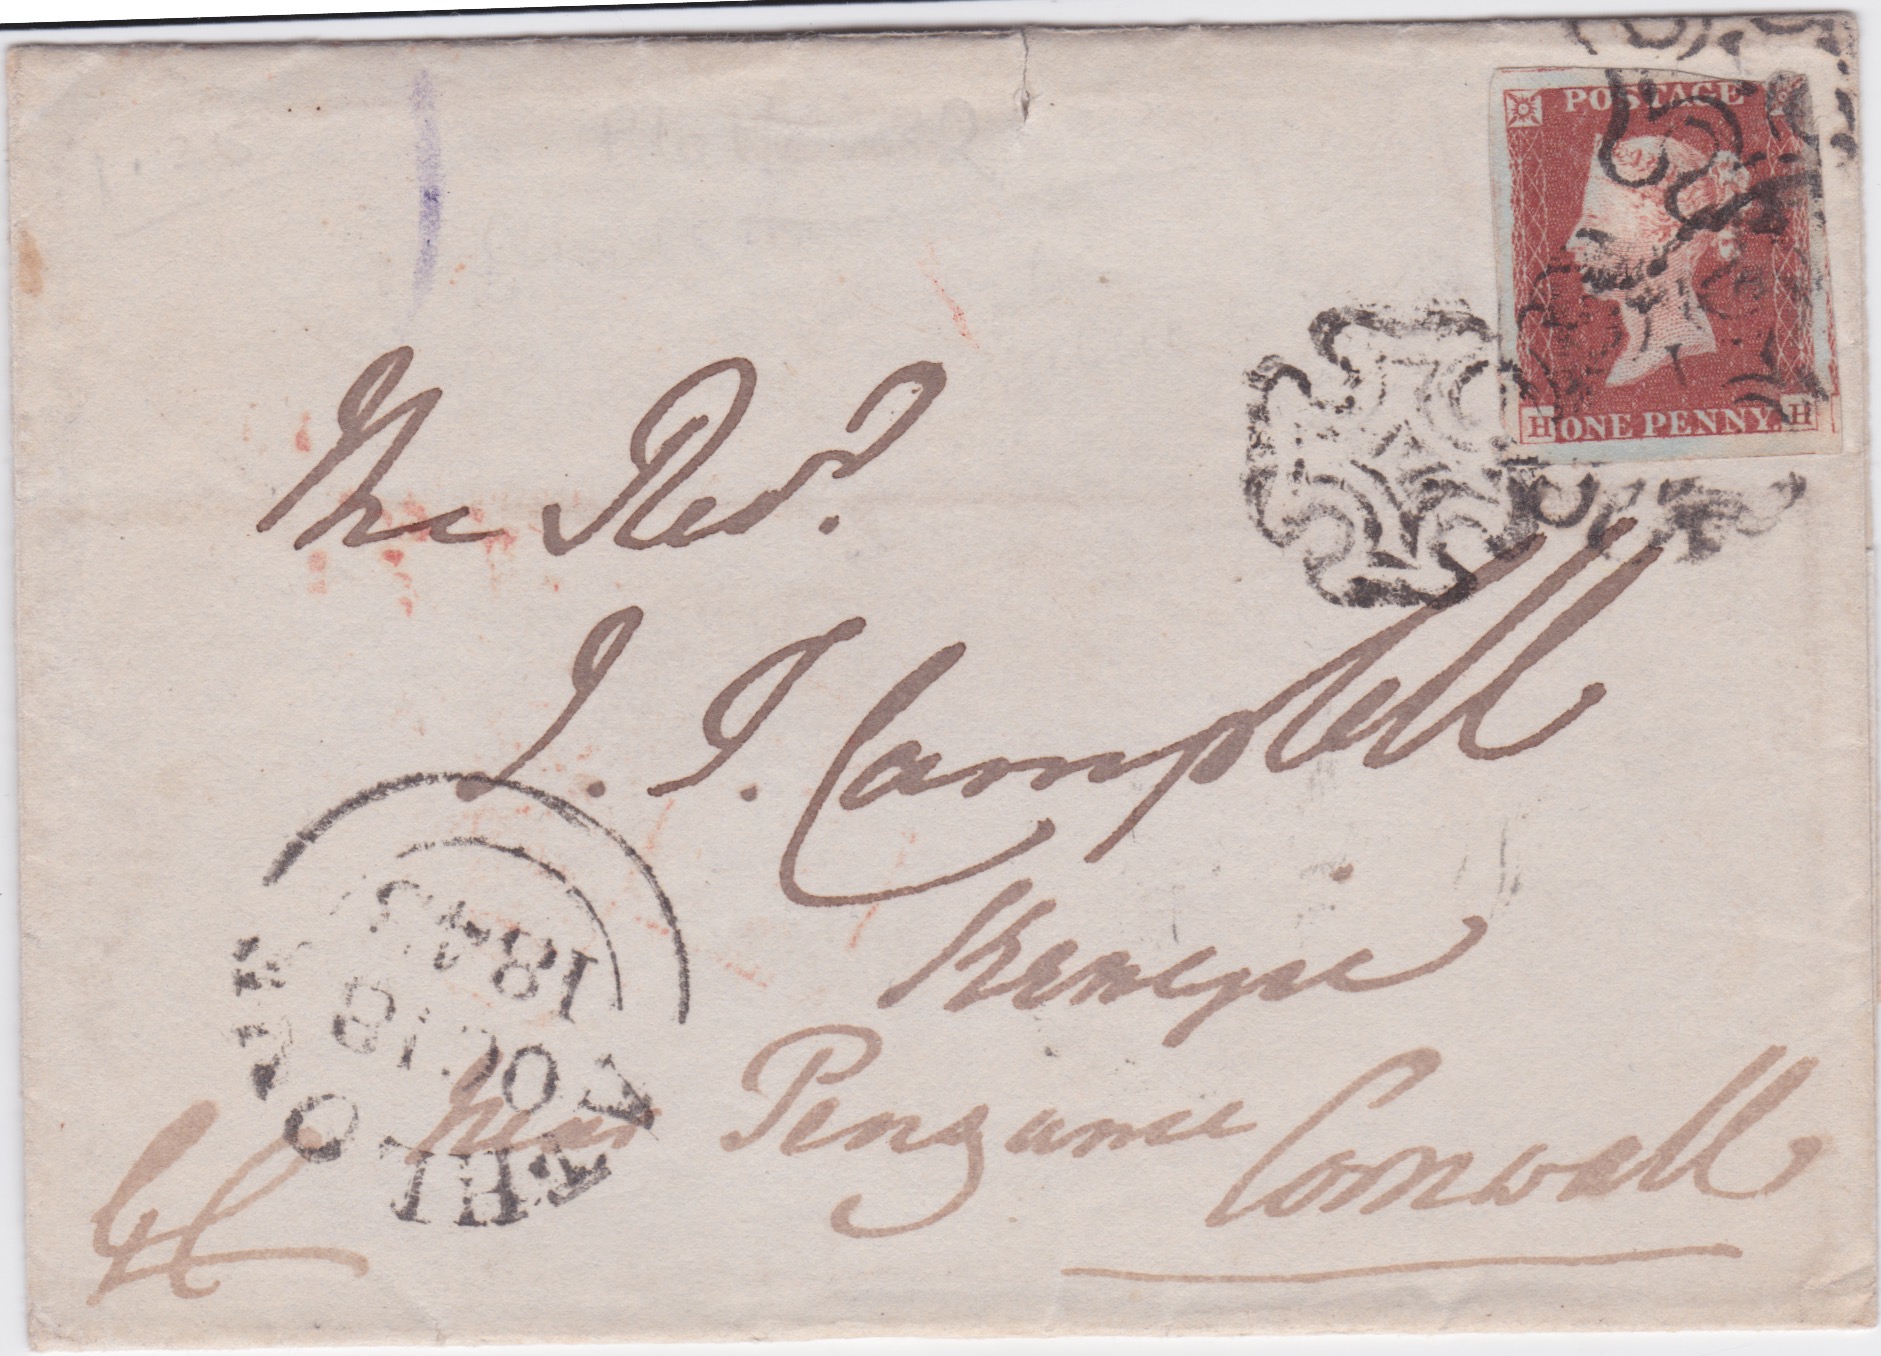 POSTAGE
H ONE PENNY. H
The Revd.
J. J. Campbell
Kenegie
near Penzance
Cornwall
ATHLO
OC 18
184